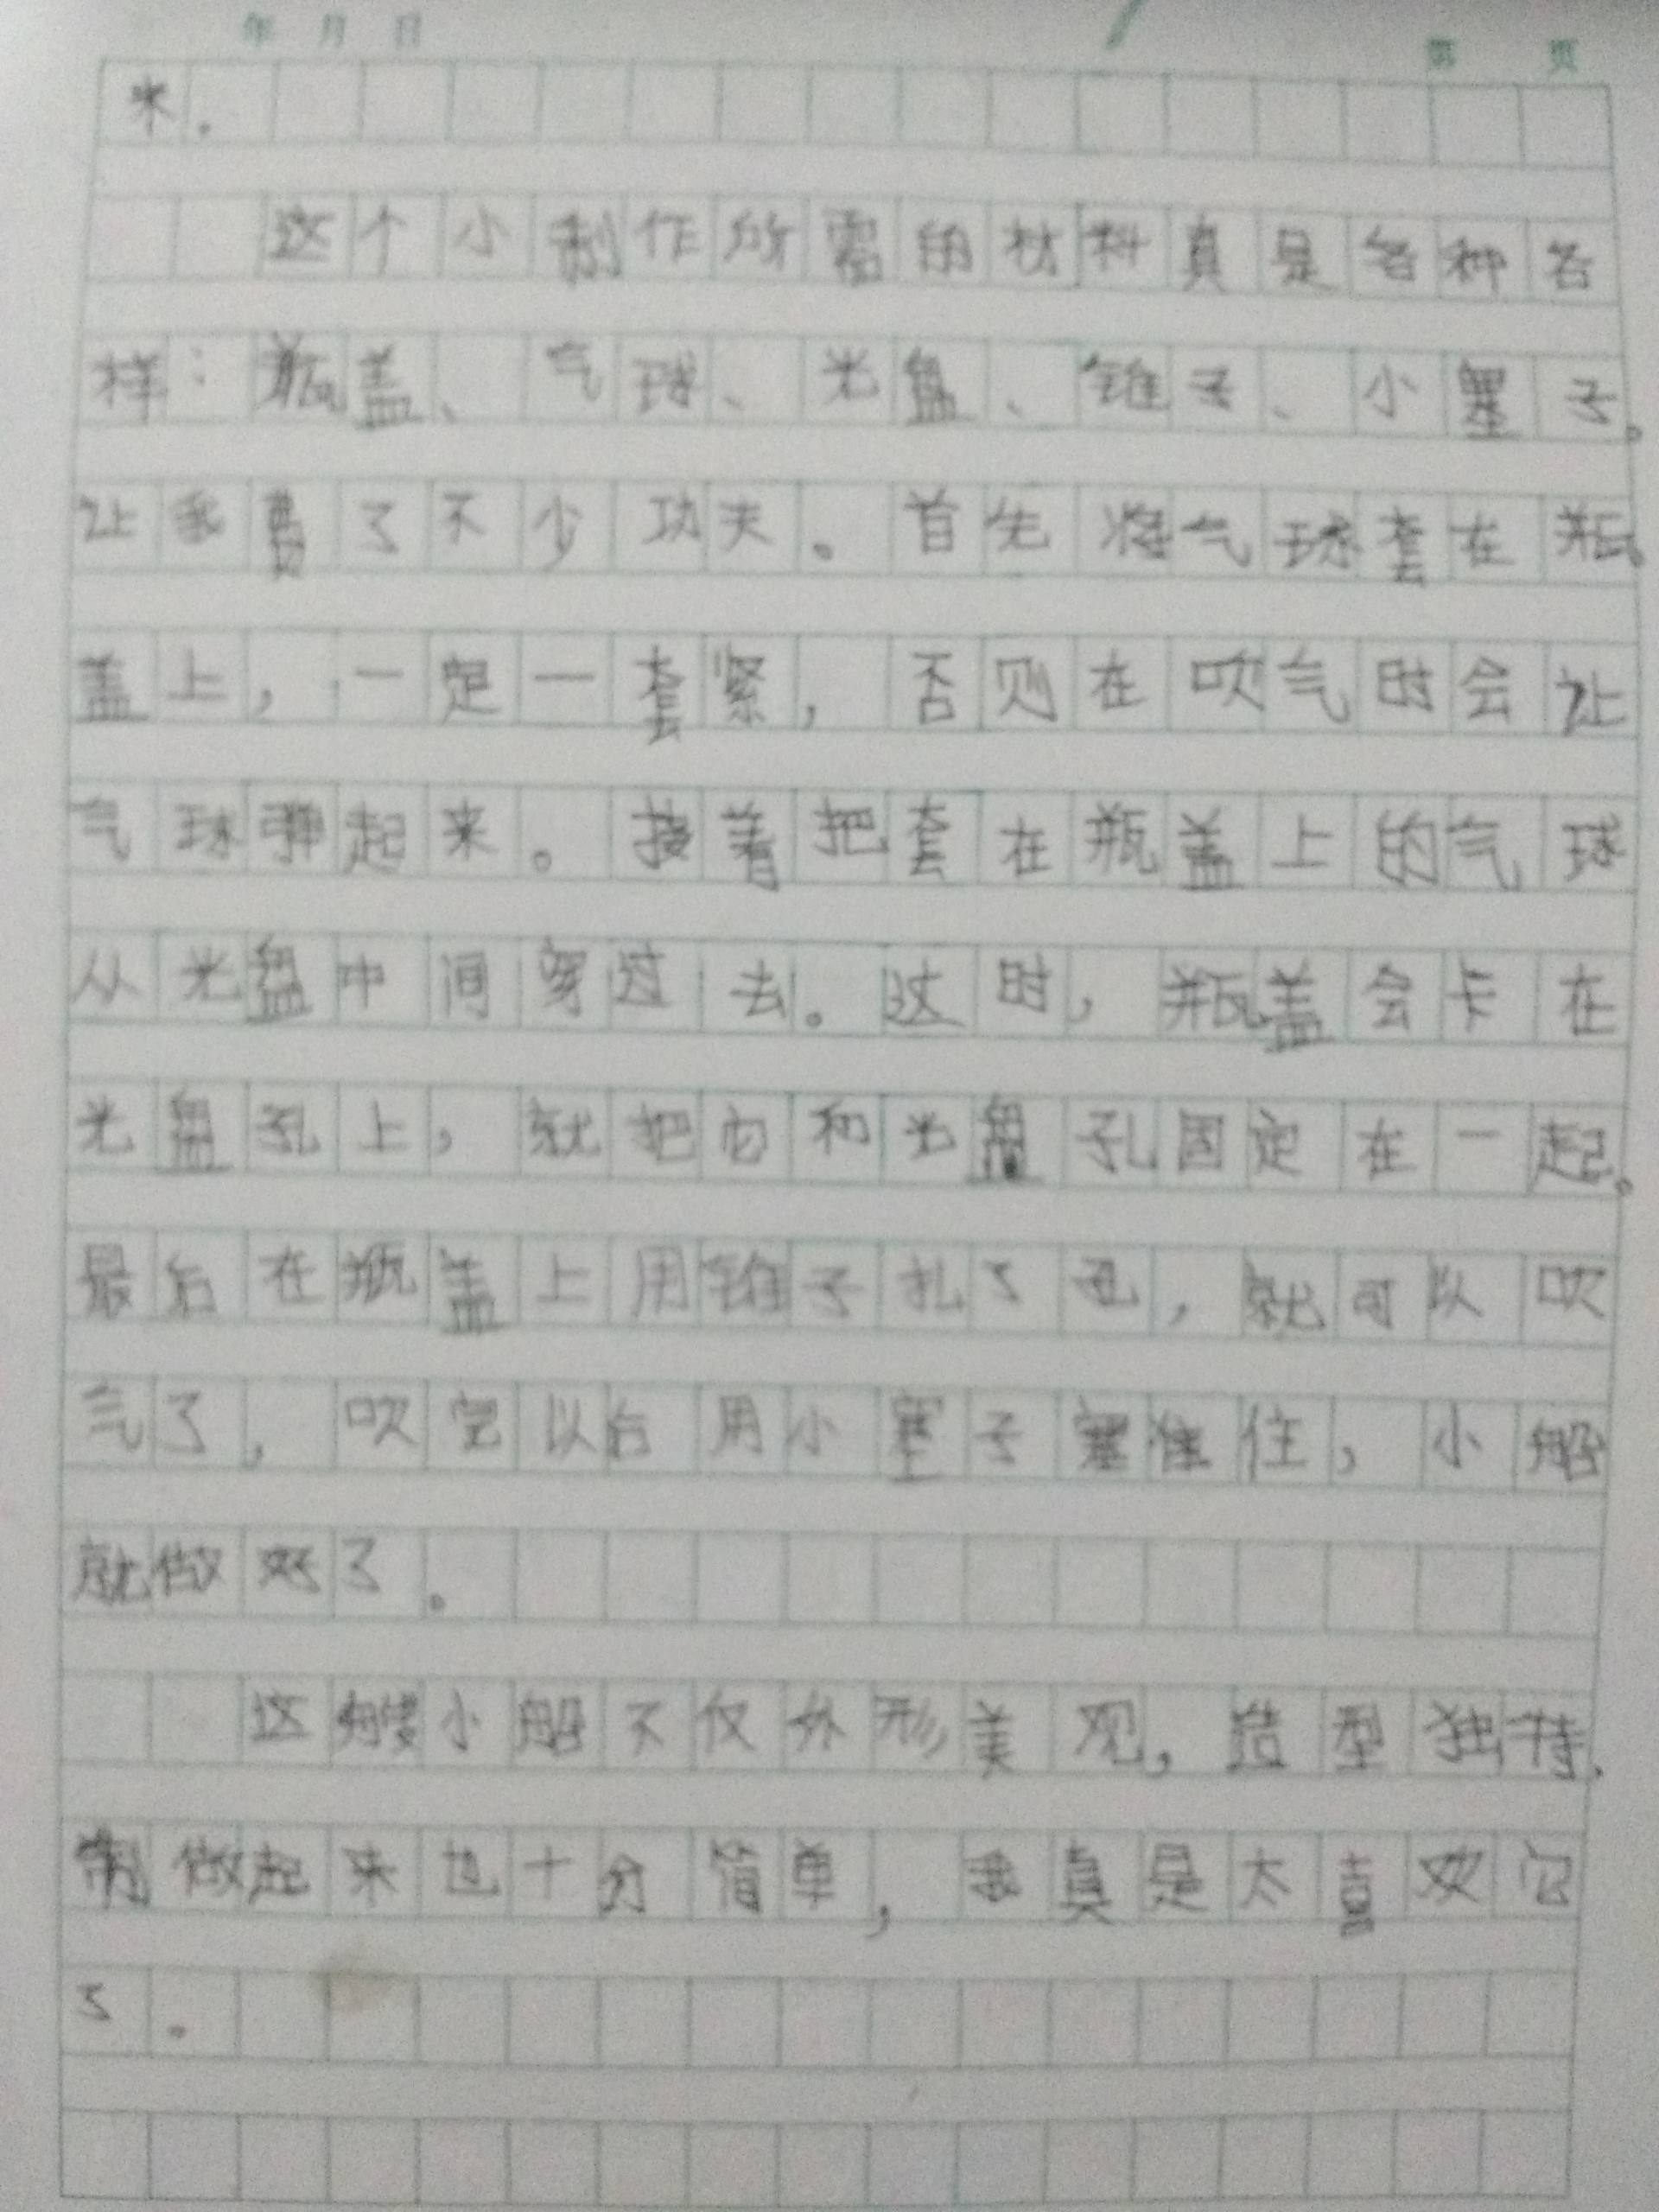 年 月 日 第 页
来。
这个小制作所需的材料真是各种各
样：瓶盖、气球、光盘、锥子、小塞子。
让我费了不少功夫。首先将气球套在瓶
盖上，一定一套紧，否则在吹气时会让
气球弹起来。接着把套在瓶盖上的气球
从光盘中间穿过去。这时，瓶盖会卡在
光盘孔上，就把它和光盘孔固定在一起。
最后在瓶盖上用锥子扎了孔，就可以吹
气了，吹完以后用小塞子塞住，小船
就做好了。
这艘小船不仅外形美观，造型独特，
制做起来也十分简单，我真是太喜欢它
了。